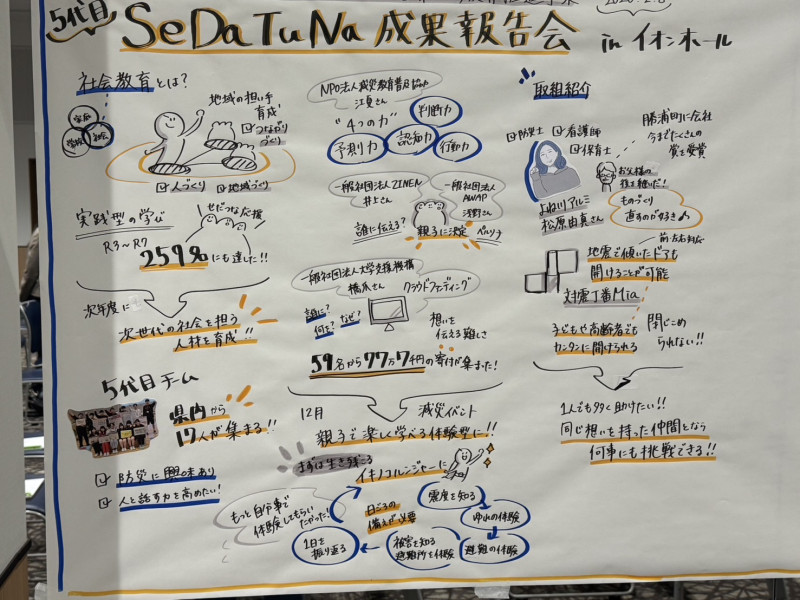 5代目
SeDaTuNa 成果報告会 in イオンホール
社会教育とは?
家庭
学校
社会
地域の担い手
育成
つながり
づくり
人づくり
地域づくり
実践型の学び
R3~R7
せだつな応援
259名にも達した!!
次年度に
次世代の社会を担う
人材を育成!!
5代目チーム
県内から
17人が集まる!!
防災に興味あり
人と話す力を高めたい!
NPO法人減災教育普及協会
江夏さん
"4つの力"
判断力
予測力
認知力
行動力
一般社団法人ZINEN
井上さん
一般社団法人
AWAP
浅野さん
誰に伝える?
親子に決定
ペルソナ
一般社団法人大学支援機構
橋爪さん
クラウドファンディング
誰に?
何を?
なぜ?
想いを
伝える難しさ
59名から77万7千円の寄付が集まった!
12月
減災イベント
親子で楽しく学べる体験型に!!
まずは生き残ろ
イキノコルンジャーに
もっと自分事で
体験してもらい
たかった!
日ごろの
備えが必要
震度を知る
浸水の体験
避難の体験
被害を知る
避難所を体験
1日を
振り返る
取組紹介
防災士
看護師
保育士
よね川アルミ
松原由真さん
勝浦町に会社
今までたくさんの
賞を受賞
お父様の
後を継いだ!
ものづくり
直すのが好き♪
前・左右対応
地震で傾いたドアも
開けることが可能
対震丁番Mia
子どもや高齢者でも
カンタンに開けられる
閉じこめ
られない!!
1人でも多く助けたい!!
同じ想いを持った仲間となら
何事にも挑戦できる!!